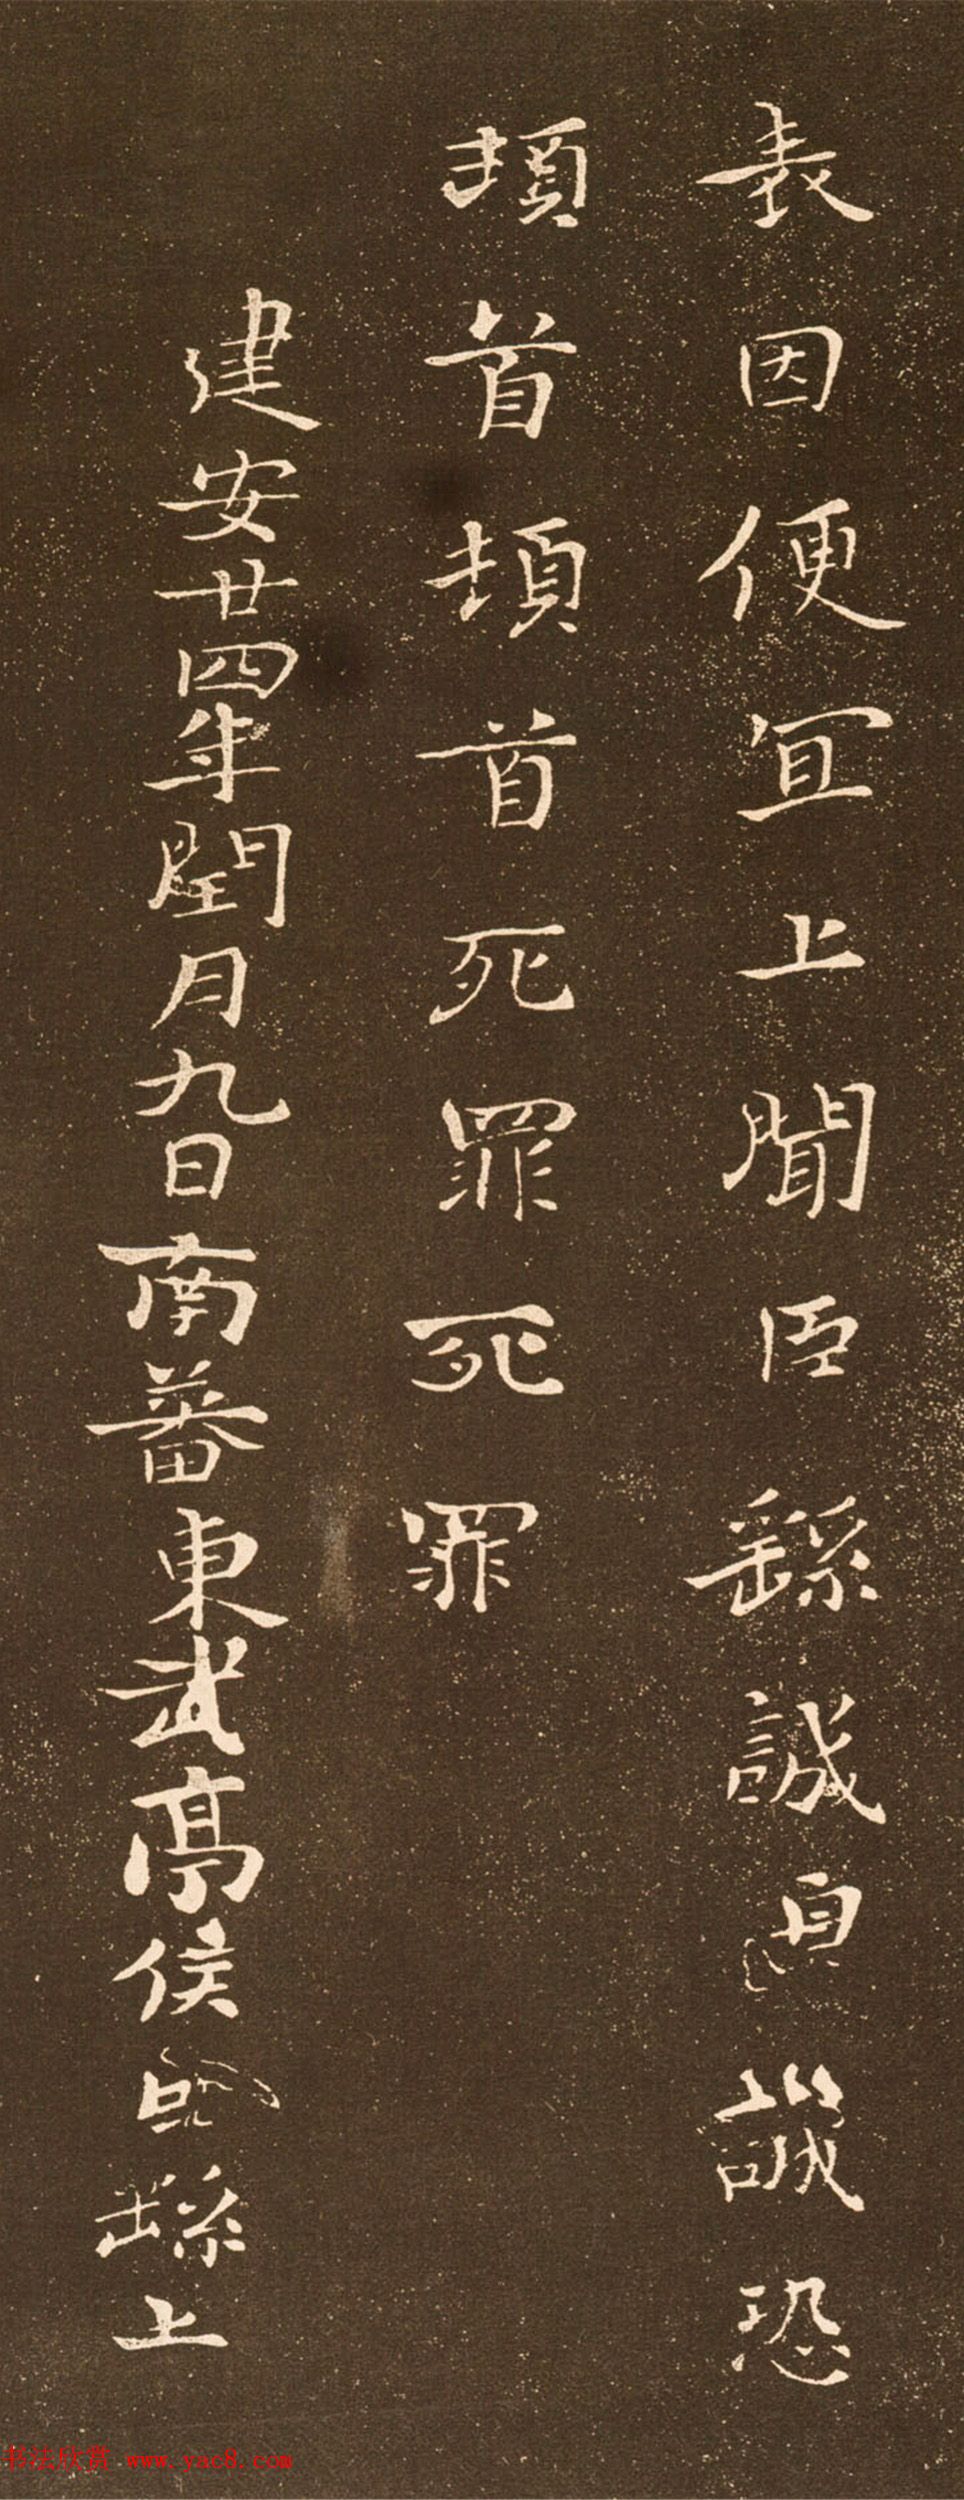 表因便宜上聞臣繇誠皇誠恐
頓首頓首死罪死罪
建安廿四年閏月九日南蕃東武亭侯臣繇上
书法欣赏 www.yac8.com